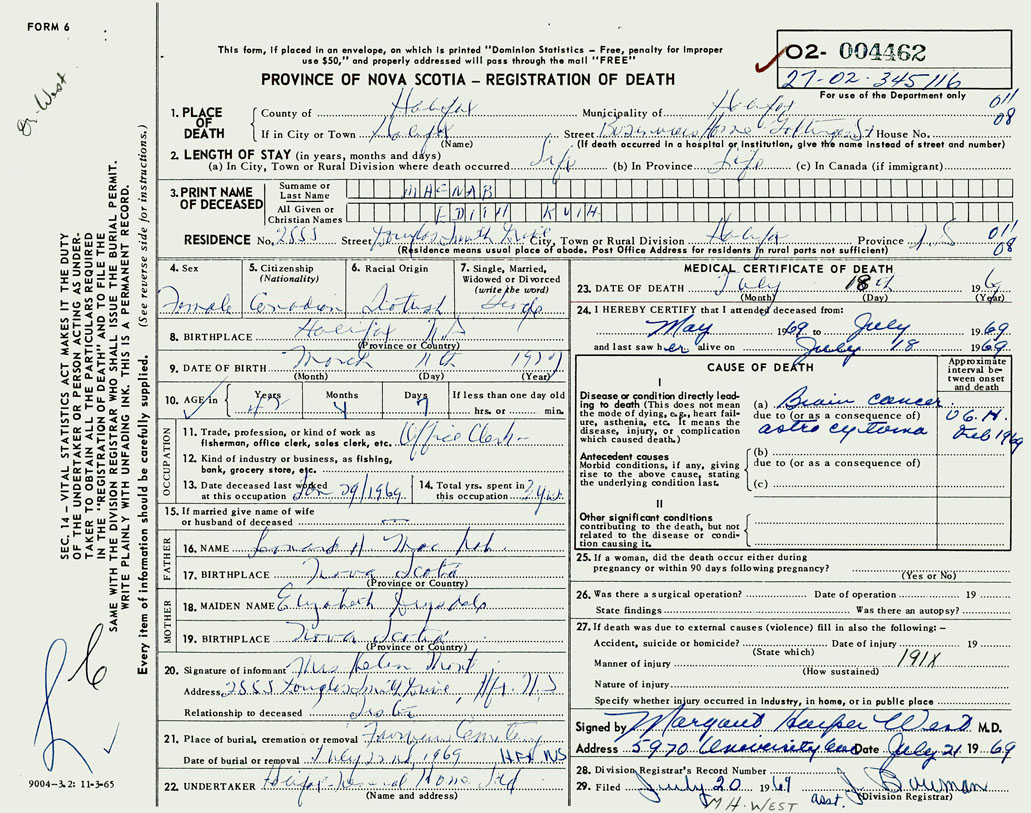 FORM 6
This form, if placed in an envelope, on which is printed "Dominion Statistics – Free, penalty for improper
use $50," and properly addressed will pass through the mail "FREE"
PROVINCE OF NOVA SCOTIA – REGISTRATION OF DEATH
02- 004462
27-02-345116
For use of the Department only
Dr. West
SEC. 14 – VITAL STATISTICS ACT MAKES IT THE DUTY
OF THE UNDERTAKER OR PERSON ACTING AS UNDER-
TAKER TO OBTAIN ALL THE PARTICULARS REQUIRED
IN THE "REGISTRATION OF DEATH" AND TO FILE THE
SAME WITH THE DIVISION REGISTRAR WHO SHALL ISSUE THE BURIAL PERMIT.
WRITE PLAINLY WITH UNFADING INK. THIS IS A PERMANENT RECORD.
Every item of information should be carefully supplied. (See reverse side for instructions.)
1. PLACE OF DEATH County of Halifax Municipality of Halifax 011 08
If in City or Town Halifax (Name) Street Gottingen St House No.
(If death occurred in a hospital or institution, give the name instead of street and number)
2. LENGTH OF STAY (in years, months and days)
(a) In City, Town or Rural Division where death occurred Life (b) In Province Life (c) In Canada (if immigrant)
3. PRINT NAME OF DECEASED Surname or Last Name MACNAB
All Given or Christian Names EDITH RUTH
RESIDENCE No. 2555 Street Douglas Smith Drive City, Town or Rural Division Halifax Province N S 011 08
(Residence means usual place of abode. Post Office Address for residents in rural parts not sufficient)
4. Sex Female
5. Citizenship (Nationality) Canadian
6. Racial Origin Scotish
7. Single, Married, Widowed or Divorced (write the word) Single
8. BIRTHPLACE Halifax N.S (Province or Country)
9. DATE OF BIRTH March 11th (Month) (Day) (Year)
10. AGE in Years 42 Months 4 Days 7 If less than one day old hrs. or min.
OCCUPATION
11. Trade, profession, or kind of work as fisherman, office clerk, sales clerk, etc. Office Clerk
12. Kind of industry or business, as fishing, bank, grocery store, etc.
13. Date deceased last worked at this occupation Jan 29/1969
14. Total yrs. spent in this occupation
15. If married give name of wife or husband of deceased
FATHER
16. NAME
17. BIRTHPLACE Nova Scotia (Province or Country)
MOTHER
18. MAIDEN NAME Elizabeth Drysdale
19. BIRTHPLACE Nova Scotia (Province or Country)
20. Signature of informant Mrs Helen
Address 2555 Douglas Smith Drive, Hfx. N.S
Relationship to deceased Sister
21. Place of burial, cremation or removal Fairview Cemetery
Date of burial or removal July 22nd 1969 HFX NS
22. UNDERTAKER Halifax Funeral Home Ltd
(Name and address)
9004-3.2: 11-3-65
MEDICAL CERTIFICATE OF DEATH
23. DATE OF DEATH July 18th 196 9
(Month) (Day) (Year)
24. I HEREBY CERTIFY that I attended deceased from:
May 1969 to July 1969
and last saw her alive on July 18 1969
CAUSE OF DEATH
Approximate interval between onset and death
I
Disease or condition directly leading to death (This does not mean the mode of dying, e.g., heart failure, asthenia, etc. It means the disease, injury, or complication which caused death.)
(a) Brain cancer
due to (or as a consequence of)
astrocytoma Feb 1969
Antecedent causes
Morbid conditions, if any, giving rise to the above cause, stating the underlying condition last.
(b)
due to (or as a consequence of)
(c)
II
Other significant conditions contributing to the death, but not related to the disease or condition causing it.
25. If a woman, did the death occur either during
pregnancy or within 90 days following pregnancy?
(Yes or No)
26. Was there a surgical operation? Date of operation 19
State findings Was there an autopsy?
27. If death was due to external causes (violence) fill in also the following: –
Accident, suicide or homicide? Date of injury 19
(State which)
Manner of injury 191X
(How sustained)
Nature of injury
Specify whether injury occurred in Industry, in home, or in public place
Signed by Margaret Harper West M.D.
Address 5970 University Ave Date July 21 1969
28. Division Registrar's Record Number
29. Filed July 20 1969 asst. J. Bowman
(Division Registrar)
M.H. WEST